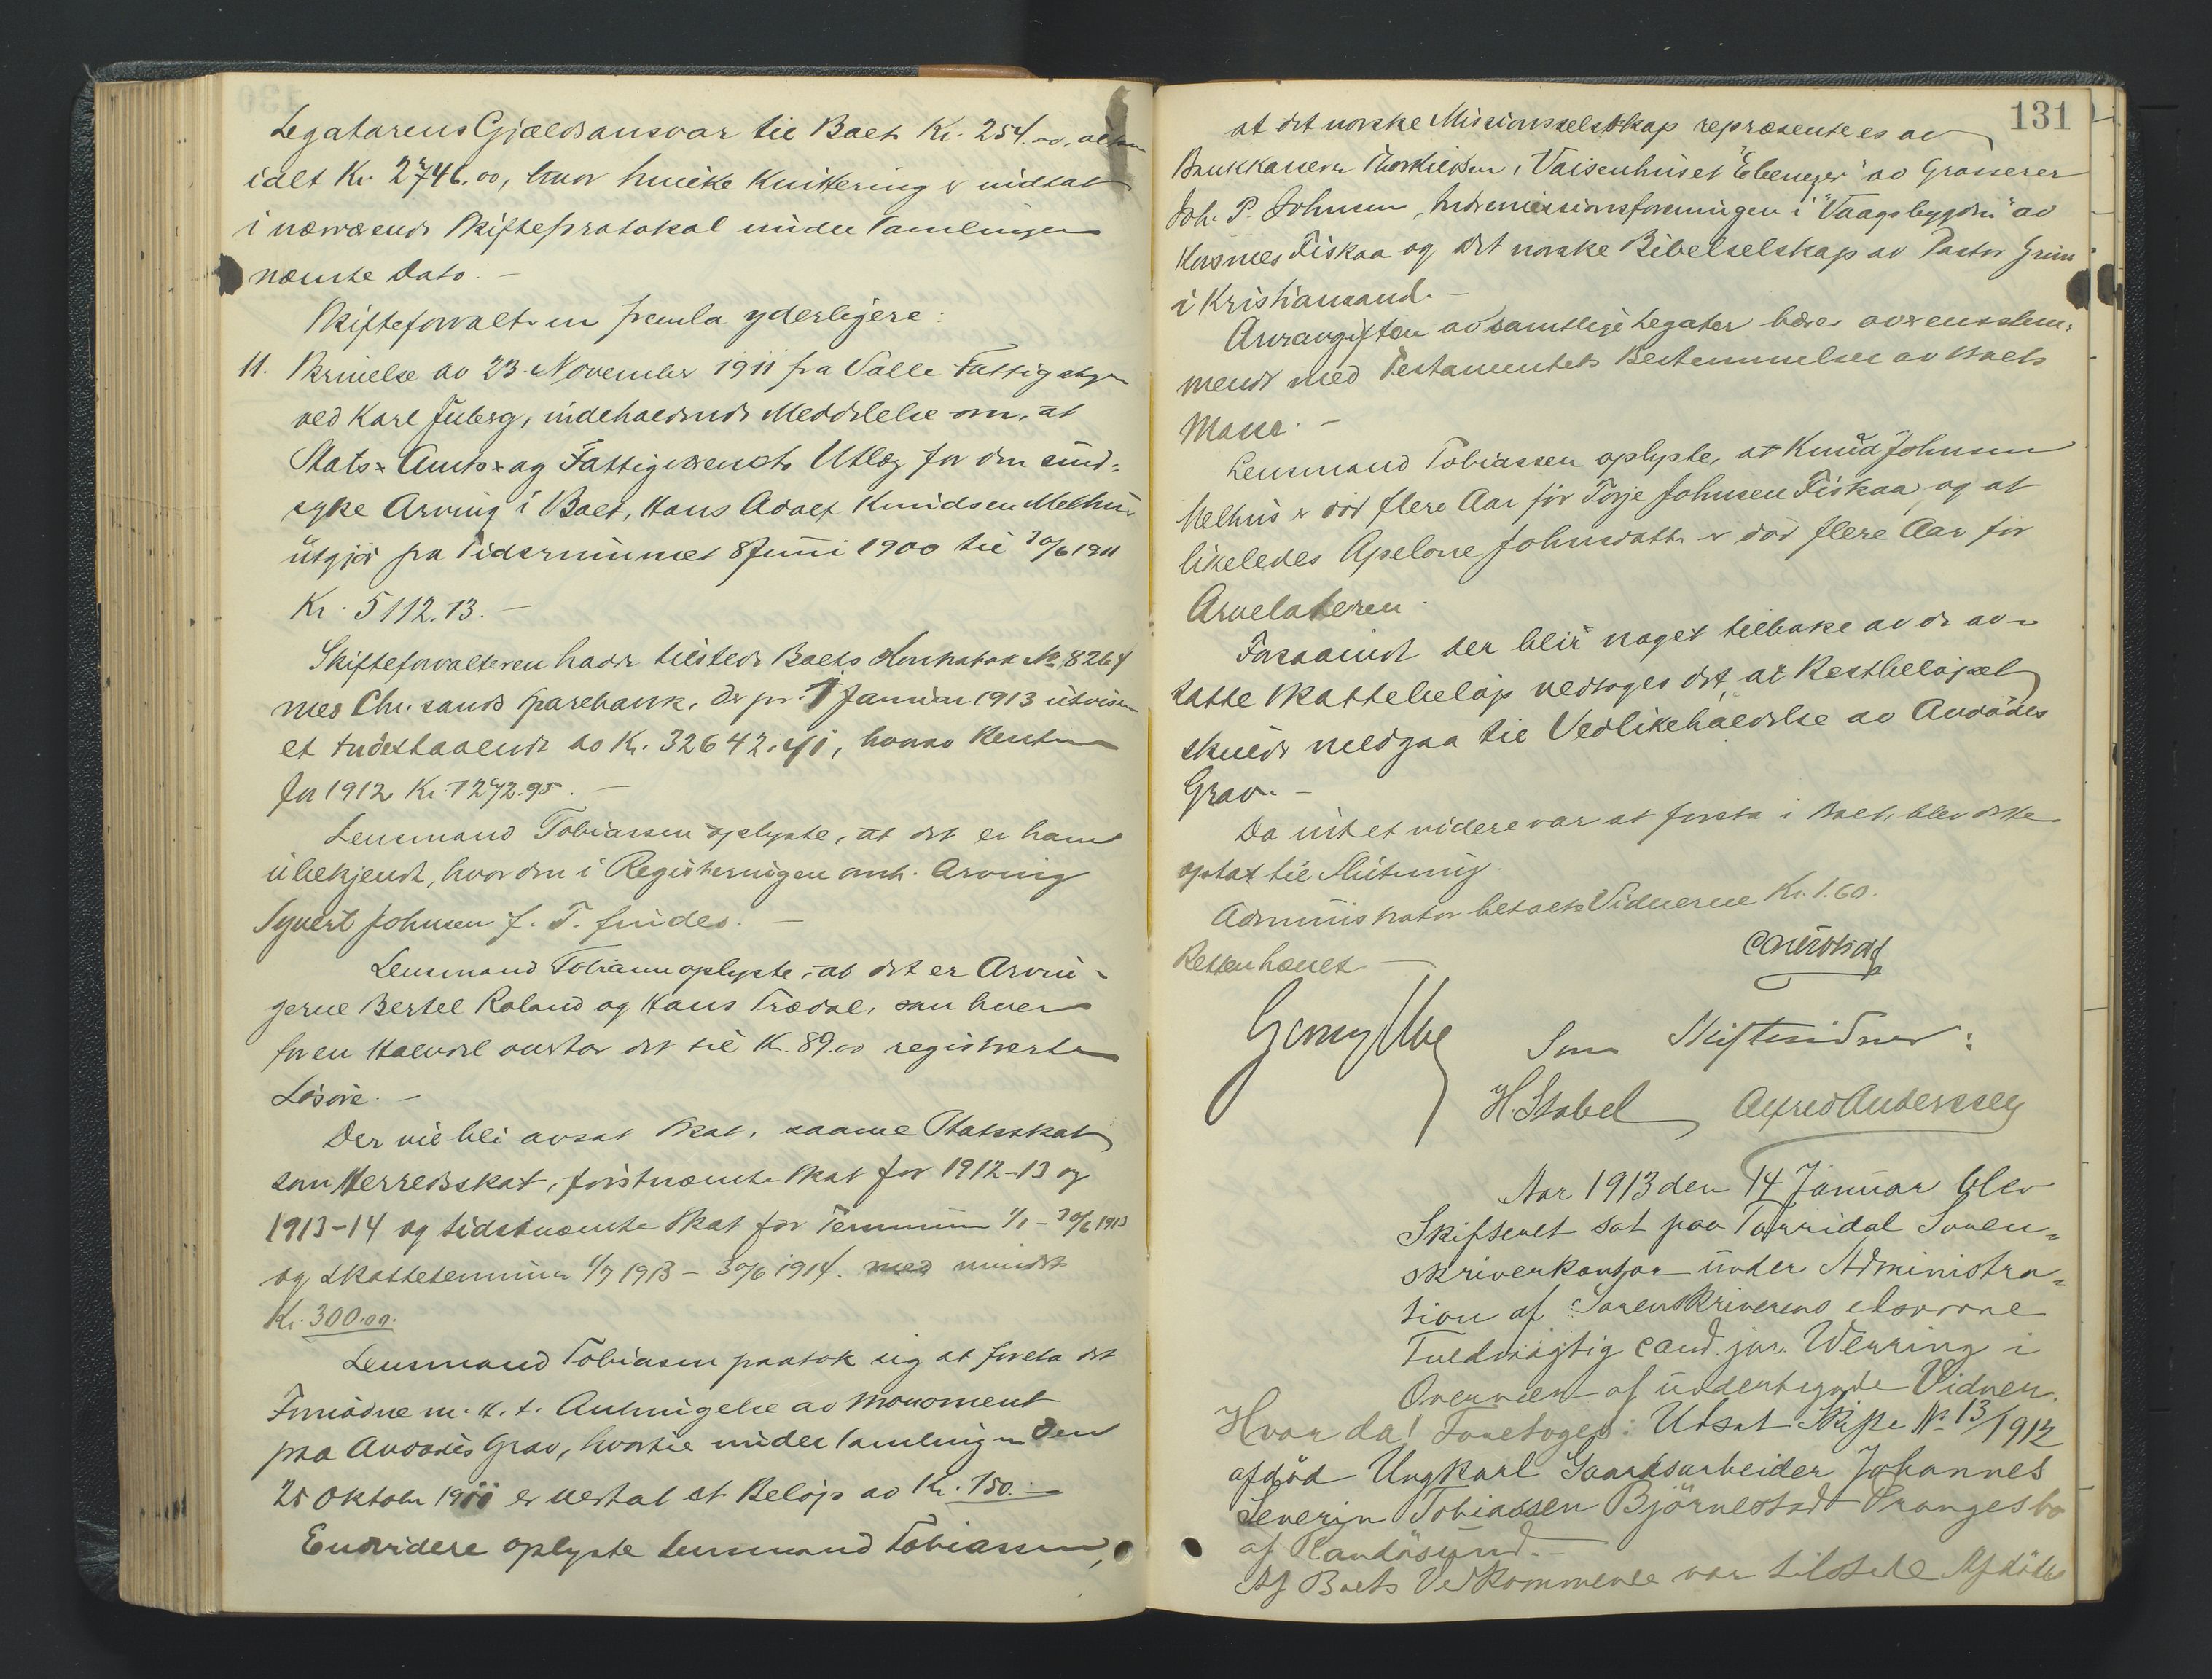 Legatarens Gjældsansvar til Boet Kr. 254.00, altsaa
ialt Kr. 2746.00, hvor hvilke Kvittering er indtat
i nærværende Skifteprotokol under Samlingen
nævnte Dato. –
Skifteforvalteren fremla yderligere:
11. Skrivelse av 23. November 1911 fra Valle Fattigstyre
ved Karl Juberg, indeholdende Meddelelse om, at
Stats- Amts- og Fattigvæsenets Utlæg for den sind-
syke Arving i Boet, Hans Adolf Knudsen Melhus
utgjør fra Tidsrummet 8 Juni 1900 til 30/6 1911
Kr. 5112.13. –
Skifteforvalteren hadde tilstede Boets Kontrabok No 8264
med Chr.sands Sparebank, der pr. 1 Januar 1913 utviser
et Indestaaende av Kr. 32642.41, hvorav Renten
for 1912 Kr. 1272.95. –
Lensmand Tobiassen oplyste, at det er ham
ubekjendt, hvor den i Registreringen omh. Arving
Syvert Johnsen f. T. findes. –
Lensmand Tobiassen oplyste, at det er Arvin-
gerne Bertel Roland og Hans Trædal, som hver
for en Halvdel overtar det til Kr. 89.00 registrerte
Løsøre. –
Der vil bli avsat Skat, saavel Statsskat
som Herredsskat, førstnævnte Skat for 1912-13 og
1913-14 og sidstnævnte Skat for Terminen 1/1 - 30/6 1913
og Skatteterminen 1/7 1913 - 30/6 1914. med mindst
Kr. 300.00.
Lensmand Tobiassen paatok sig at foreta det
Fornødne m. H. t. Anbringelse av Monoment
paa Avdødes Grav, hvortil under Samlingen den
25 Oktober 1911 er vedtat et Beløp av Kr. 150.–
Endvidere oplyste Lensmand Tobiassen,
131
at det norske Missionsselskap repræsenteres av
Bankkasserer Thorkildsen, Vaisenhuset "Ebenezer" av Grosserer
Joh. P. Johnsen, Indremissionsforeningen i "Vaagsbygden" av
Fiskaa og det norske Bibelselskap av Pastor Grim
i Kristiansand. –
Arveavgiften av samtlige Legater bæres overensstem-
mende med Testamentets Bestemmelser av Boets
Masse. –
Lensmand Tobiassen oplyste, at Knud Johnsen
Melhus er død flere Aar før Torje Johnsen Fiskaa og at
likeledes Apelone Johnsdatter er død flere Aar før
Arveladeren.
Forsaavidt der blir noget tilbake av de av-
satte Skattebeløp vedtoges det, at Restbeløpet
skulde medgaa til Vedlikeholdelse av Avdødes
Grav. –
Da intet videre var at foreta i Boet, blev dette
optat til Slutning.
Administrator betalte Vidnerne Kr. 1.60.
Retten hævet. –
Som Skiftevidner:
H. Stabel Alfred Anderssen
Aar 1913 den 14 Januar blev
Skifteret sat paa Torridal Soren-
skriverkontor under Administra-
tion af Sorenskriverens edsvorne
Fuldmægtig cand. jur. Werring i
Overvær af undertegnede Vidner.
Hvor da! Foretoges: Utsat Skifte No 13/1912
afdød Ungkarl Gaardsarbeider Johannes
Severin Tobiassen Bjørnestad Prangesbo
af Randøsund. –
Af Boets Vedkommende var tilstede Afdødes